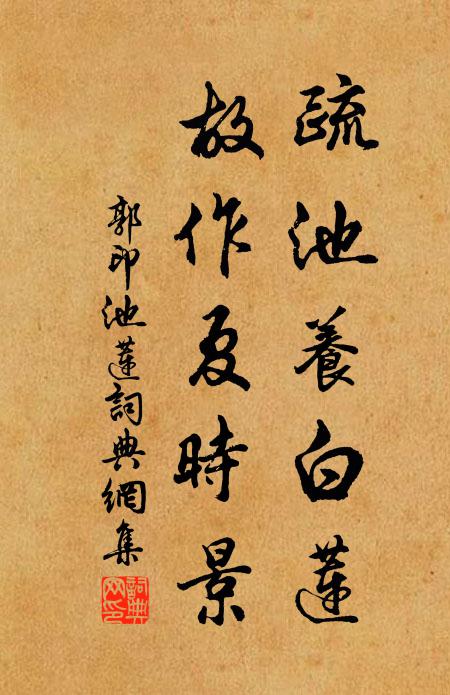 疏池養白蓮
故作夏時景
郭印池蓮詞典網集
詞典網印